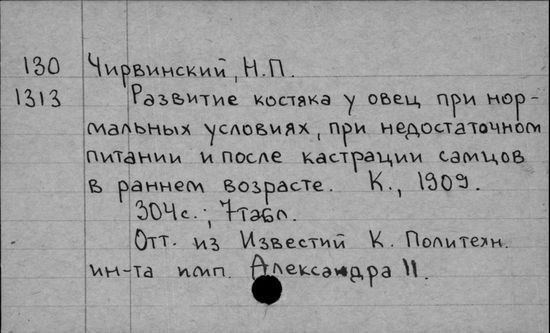 130 Чирвинский, Н.П.
1313 Развитие костяка у овец при нор-
мальных условиях, при недостаточном
питании и после кастрации самцов
в раннем возрасте. К., 1909.
304с.; 7табл.
Отт. из Известий К. Политехн.
ин-та имп. Александра II.